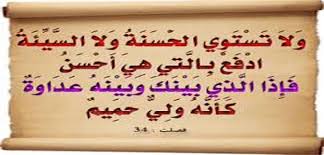 وَلَا تَسْتَوِي الْحَسَنَةُ وَلَا السَّيِّئَةُ
ادْفَعْ بِالَّتِي هِيَ أَحْسَنُ
فَإِذَا الَّذِي بَيْنَكَ وَبَيْنَهُ عَدَاوَةٌ
كَأَنَّهُ وَلِيٌّ حَمِيمٌ
فصلت : 34